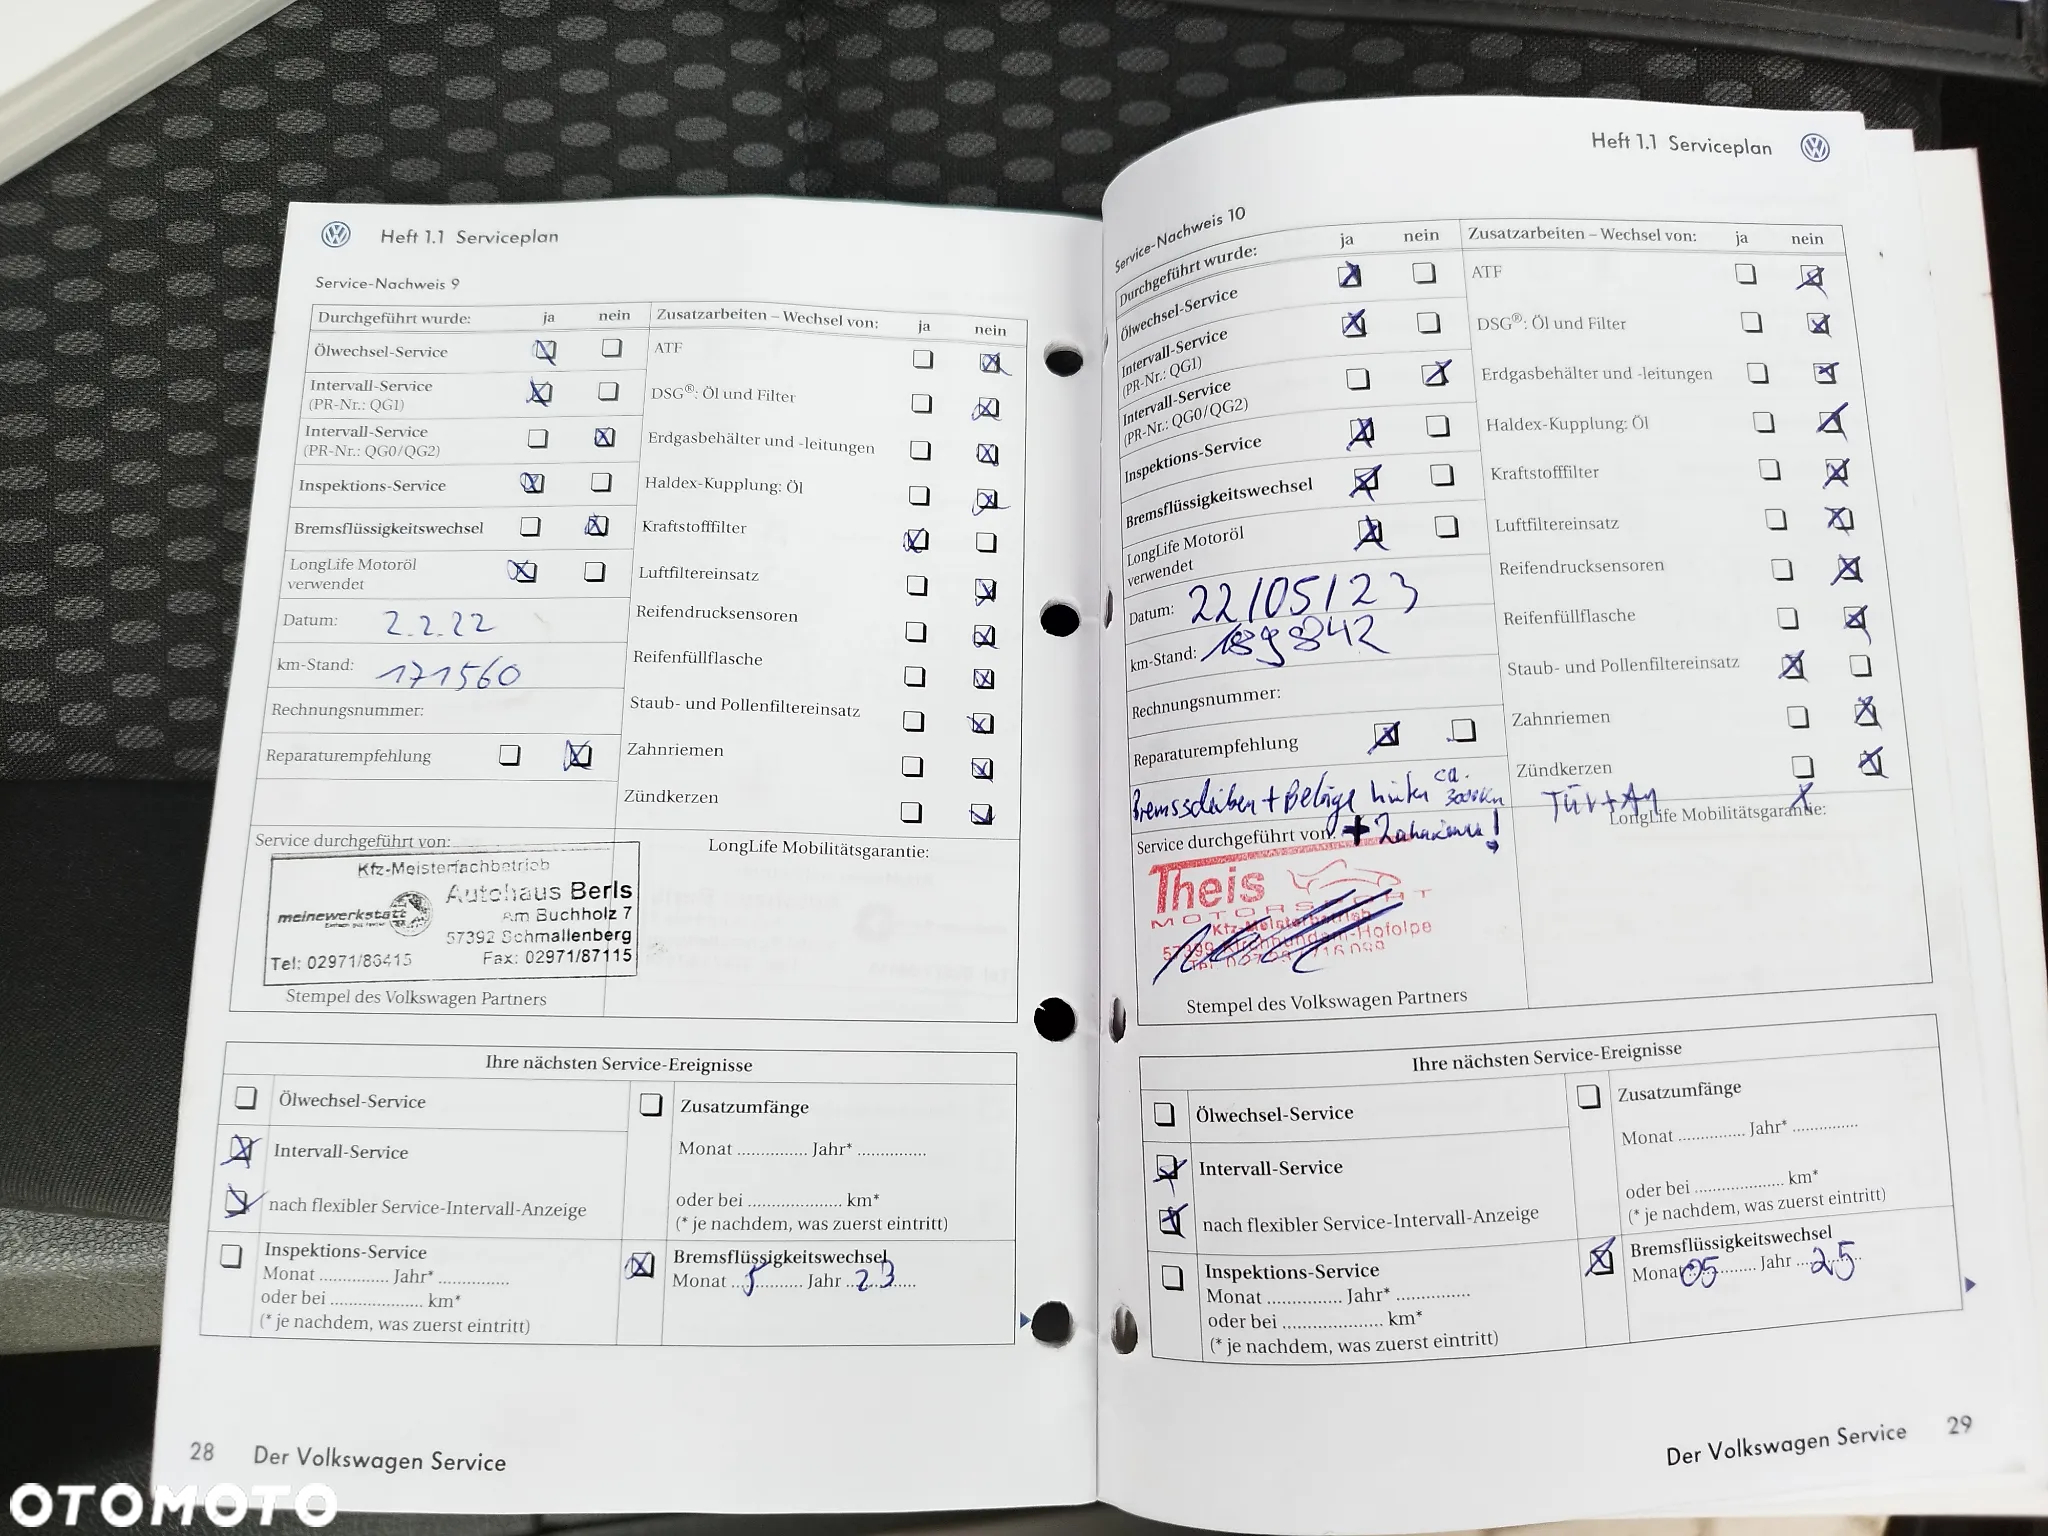 Heft 1.1 Serviceplan
Service-Nachweis 9
Durchgeführt wurde: ja nein
Ölwechsel-Service
Intervall-Service
(PR-Nr.: QG1)
Intervall-Service
(PR-Nr.: QG0/QG2)
Inspektions-Service
Bremsflüssigkeitswechsel
LongLife Motoröl
verwendet
Datum: 2.2.22
km-Stand: 171560
Rechnungsnummer:
Reparaturempfehlung
Zusatzarbeiten – Wechsel von: ja nein
ATF
DSG®: Öl und Filter
Erdgasbehälter und -leitungen
Haldex-Kupplung: Öl
Kraftstofffilter
Luftfiltereinsatz
Reifendrucksensoren
Reifenfüllflasche
Staub- und Pollenfiltereinsatz
Zahnriemen
Zündkerzen
Service durchgeführt von:
Kfz-Meisterfachbetrieb
meinewerkstatt
Autohaus Berls
Am Buchholz 7
57392 Schmallenberg
Tel: 02971/86415 Fax: 02971/87115
Stempel des Volkswagen Partners
LongLife Mobilitätsgarantie:
Ihre nächsten Service-Ereignisse
Ölwechsel-Service
Intervall-Service
nach flexibler Service-Intervall-Anzeige
Inspektions-Service
Monat ............... Jahr* ...............
oder bei .................... km*
(* je nachdem, was zuerst eintritt)
Zusatzumfänge
Monat ............... Jahr* ...............
oder bei .................... km*
(* je nachdem, was zuerst eintritt)
Bremsflüssigkeitswechsel
Monat 5 Jahr 23
28 Der Volkswagen Service
Heft 1.1 Serviceplan
Service-Nachweis 10
Durchgeführt wurde: ja nein
Ölwechsel-Service
Intervall-Service
(PR-Nr.: QG1)
Intervall-Service
(PR-Nr.: QG0/QG2)
Inspektions-Service
Bremsflüssigkeitswechsel
LongLife Motoröl
verwendet
Datum: 22/05/23
km-Stand: 189842
Rechnungsnummer:
Reparaturempfehlung
Bremsscheiben + Beläge hinten ca. 3000km
Service durchgeführt von: + Zahnriemen!
Theis
MOTORSPORT
Kfz-Meisterbetrieb
57399 Kirchhundem-Hofolpe
Stempel des Volkswagen Partners
Zusatzarbeiten – Wechsel von: ja nein
ATF
DSG®: Öl und Filter
Erdgasbehälter und -leitungen
Haldex-Kupplung: Öl
Kraftstofffilter
Luftfiltereinsatz
Reifendrucksensoren
Reifenfüllflasche
Staub- und Pollenfiltereinsatz
Zahnriemen
Zündkerzen
TÜV + AU X
LongLife Mobilitätsgarantie:
Ihre nächsten Service-Ereignisse
Ölwechsel-Service
Intervall-Service
nach flexibler Service-Intervall-Anzeige
Inspektions-Service
Monat ............... Jahr* ...............
oder bei .................... km*
(* je nachdem, was zuerst eintritt)
Zusatzumfänge
Monat ............... Jahr* ...............
oder bei .................... km*
(* je nachdem, was zuerst eintritt)
Bremsflüssigkeitswechsel
Monat 05 Jahr 25
Der Volkswagen Service 29
OTOMOTO